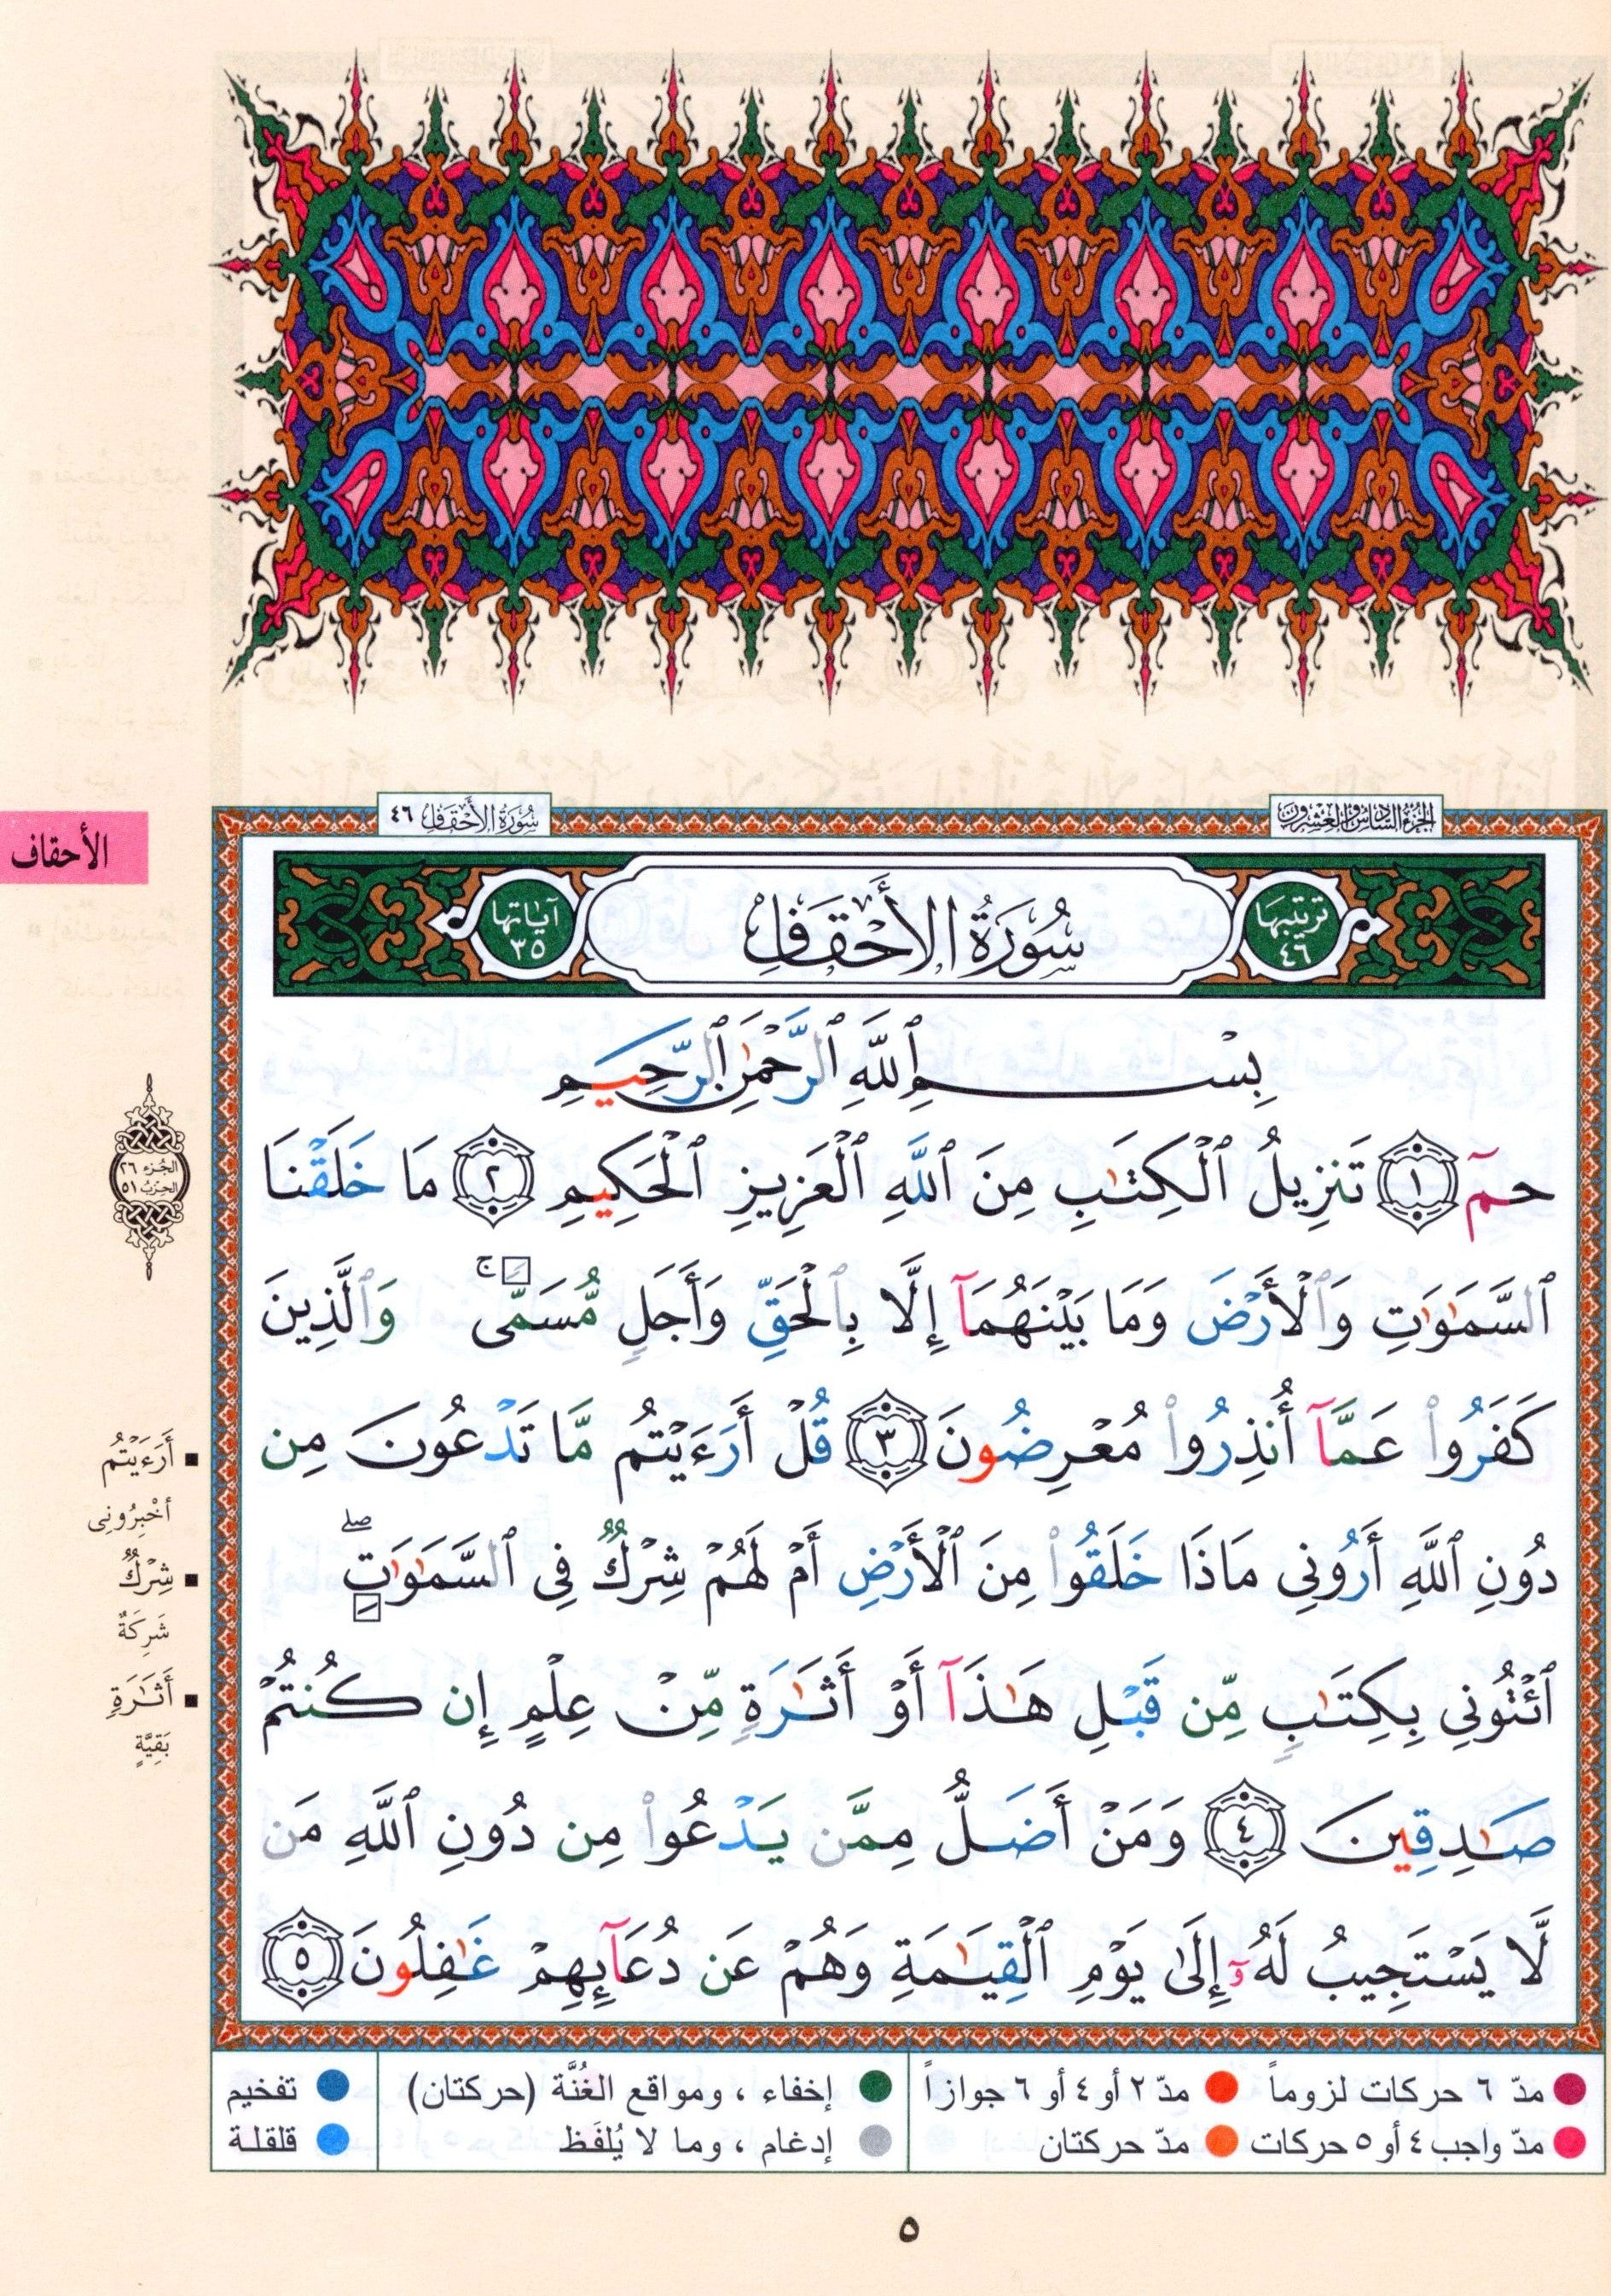 الجزء السادس والعشرون
سُورَةُ الأَحْقَافِ ٤٦
الأحقاف
ترتيبها ٤٦
سُورَةُ الأَحْقَافِ
آياتها ٣٥
بِسْمِ ٱللَّهِ ٱلرَّحْمَٰنِ ٱلرَّحِيمِ
حمٓ ١ تَنزِيلُ ٱلْكِتَٰبِ مِنَ ٱللَّهِ ٱلْعَزِيزِ ٱلْحَكِيمِ ٢ مَا خَلَقْنَا
ٱلسَّمَٰوَٰتِ وَٱلْأَرْضَ وَمَا بَيْنَهُمَآ إِلَّا بِٱلْحَقِّ وَأَجَلٍ مُّسَمًّى ۚ وَٱلَّذِينَ
كَفَرُوا۟ عَمَّآ أُنذِرُوا۟ مُعْرِضُونَ ٣ قُلْ أَرَءَيْتُم مَّا تَدْعُونَ مِن
دُونِ ٱللَّهِ أَرُونِى مَاذَا خَلَقُوا۟ مِنَ ٱلْأَرْضِ أَمْ لَهُمْ شِرْكٌ فِى ٱلسَّمَٰوَٰتِ ۖ
ٱئْتُونِى بِكِتَٰبٍ مِّن قَبْلِ هَٰذَآ أَوْ أَثَٰرَةٍ مِّنْ عِلْمٍ إِن كُنتُمْ
صَٰدِقِينَ ٤ وَمَنْ أَضَلُّ مِمَّن يَدْعُوا۟ مِن دُونِ ٱللَّهِ مَن
لَّا يَسْتَجِيبُ لَهُۥٓ إِلَىٰ يَوْمِ ٱلْقِيَٰمَةِ وَهُمْ عَن دُعَآئِهِمْ غَٰفِلُونَ ٥
الجزء ٢٦
الحزب ٥١
أَرَءَيْتُمْ
أخْبِرُونِى
شِرْكٌ
شَرِكَةٌ
أَثَٰرَةٍ
بَقِيَّةٍ
مدّ ٦ حركات لزوماً
مدّ ٢ أو ٤ أو ٦ جوازاً
إخفاء ، ومواقع الغُنَّة (حركتان)
تفخيم
مدّ واجب ٤ أو ٥ حركات
مدّ حركتان
إدغام ، وما لا يُلفَظ
قلقلة
٥